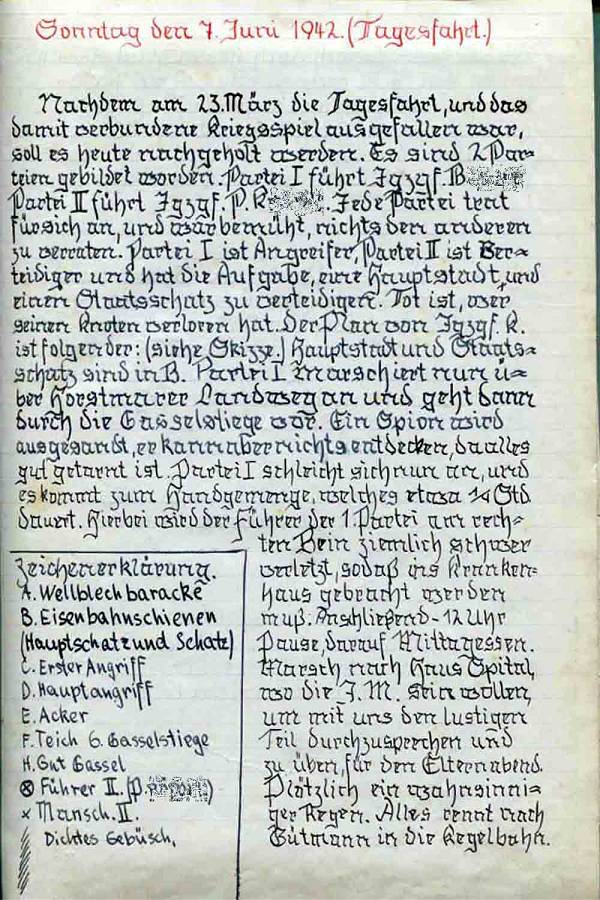 Sonntag den 7. Juni 1942. (Tagesfahrt.)
Nachdem am 23. März die Tagesfahrt, und das
damit verbundene Kriegsspiel ausgefallen war,
soll es heute nachgeholt werden. Es sind 2 Par-
teien gebildet worden. Partei I führt Jgzgf. B
Partei II führt Jgzgf. P. K. Jede Partei tritt
für sich an, und war bemüht, nichts den anderen
zu verraten. Partei I ist Angreifer, Partei II ist Ver-
teidiger und hat die Aufgabe, eine Hauptstadt, und
einen Staatsschatz zu verteidigen. Tot ist, wer
seinen Knoten verloren hat. Der Plan von Jgzgf. K.
ist folgender: (siehe Skizze.) Hauptstadt und Staats-
schatz sind in B. Partei I marschiert nun ü-
ber Horstmarer Landweg an und geht dann
durch die Gasselstiege vor. Ein Spion wird
ausgesandt, er kann aber nichts entdecken, da alles
gut getarnt ist. Partei I schleicht sich nun an, und
es kommt zum Handgemenge, welches etwa 1/4 Std.
dauert. Hierbei wird der Führer der 1. Partei am rech-
ten Bein ziemlich schwer
verletzt, sodaß ins Kranken-
haus gebracht werden
muß. Anschließend - 12 Uhr
Pause, darauf Mittagessen.
Marsch nach Haus Spital,
wo die J.M. sein wollen,
um mit uns den lustigen
Teil durchzusprechen und
zu üben, für den Elternabend.
Plötzlich ein wahnsinni-
ger Regen. Alles rennt nach
Gutmann in die Kegelbahn.
Zeichenerklärung.
A. Wellblechbaracke
B. Eisenbahnschienen
(Hauptschatz und Schatz)
C. Erster Angriff
D. Hauptangriff
E. Acker
F. Teich G. Gasselstiege
H. Gut Gassel
⊗ Führer II. (P. )
x Mansch. II.
Dichtes Gebüsch,